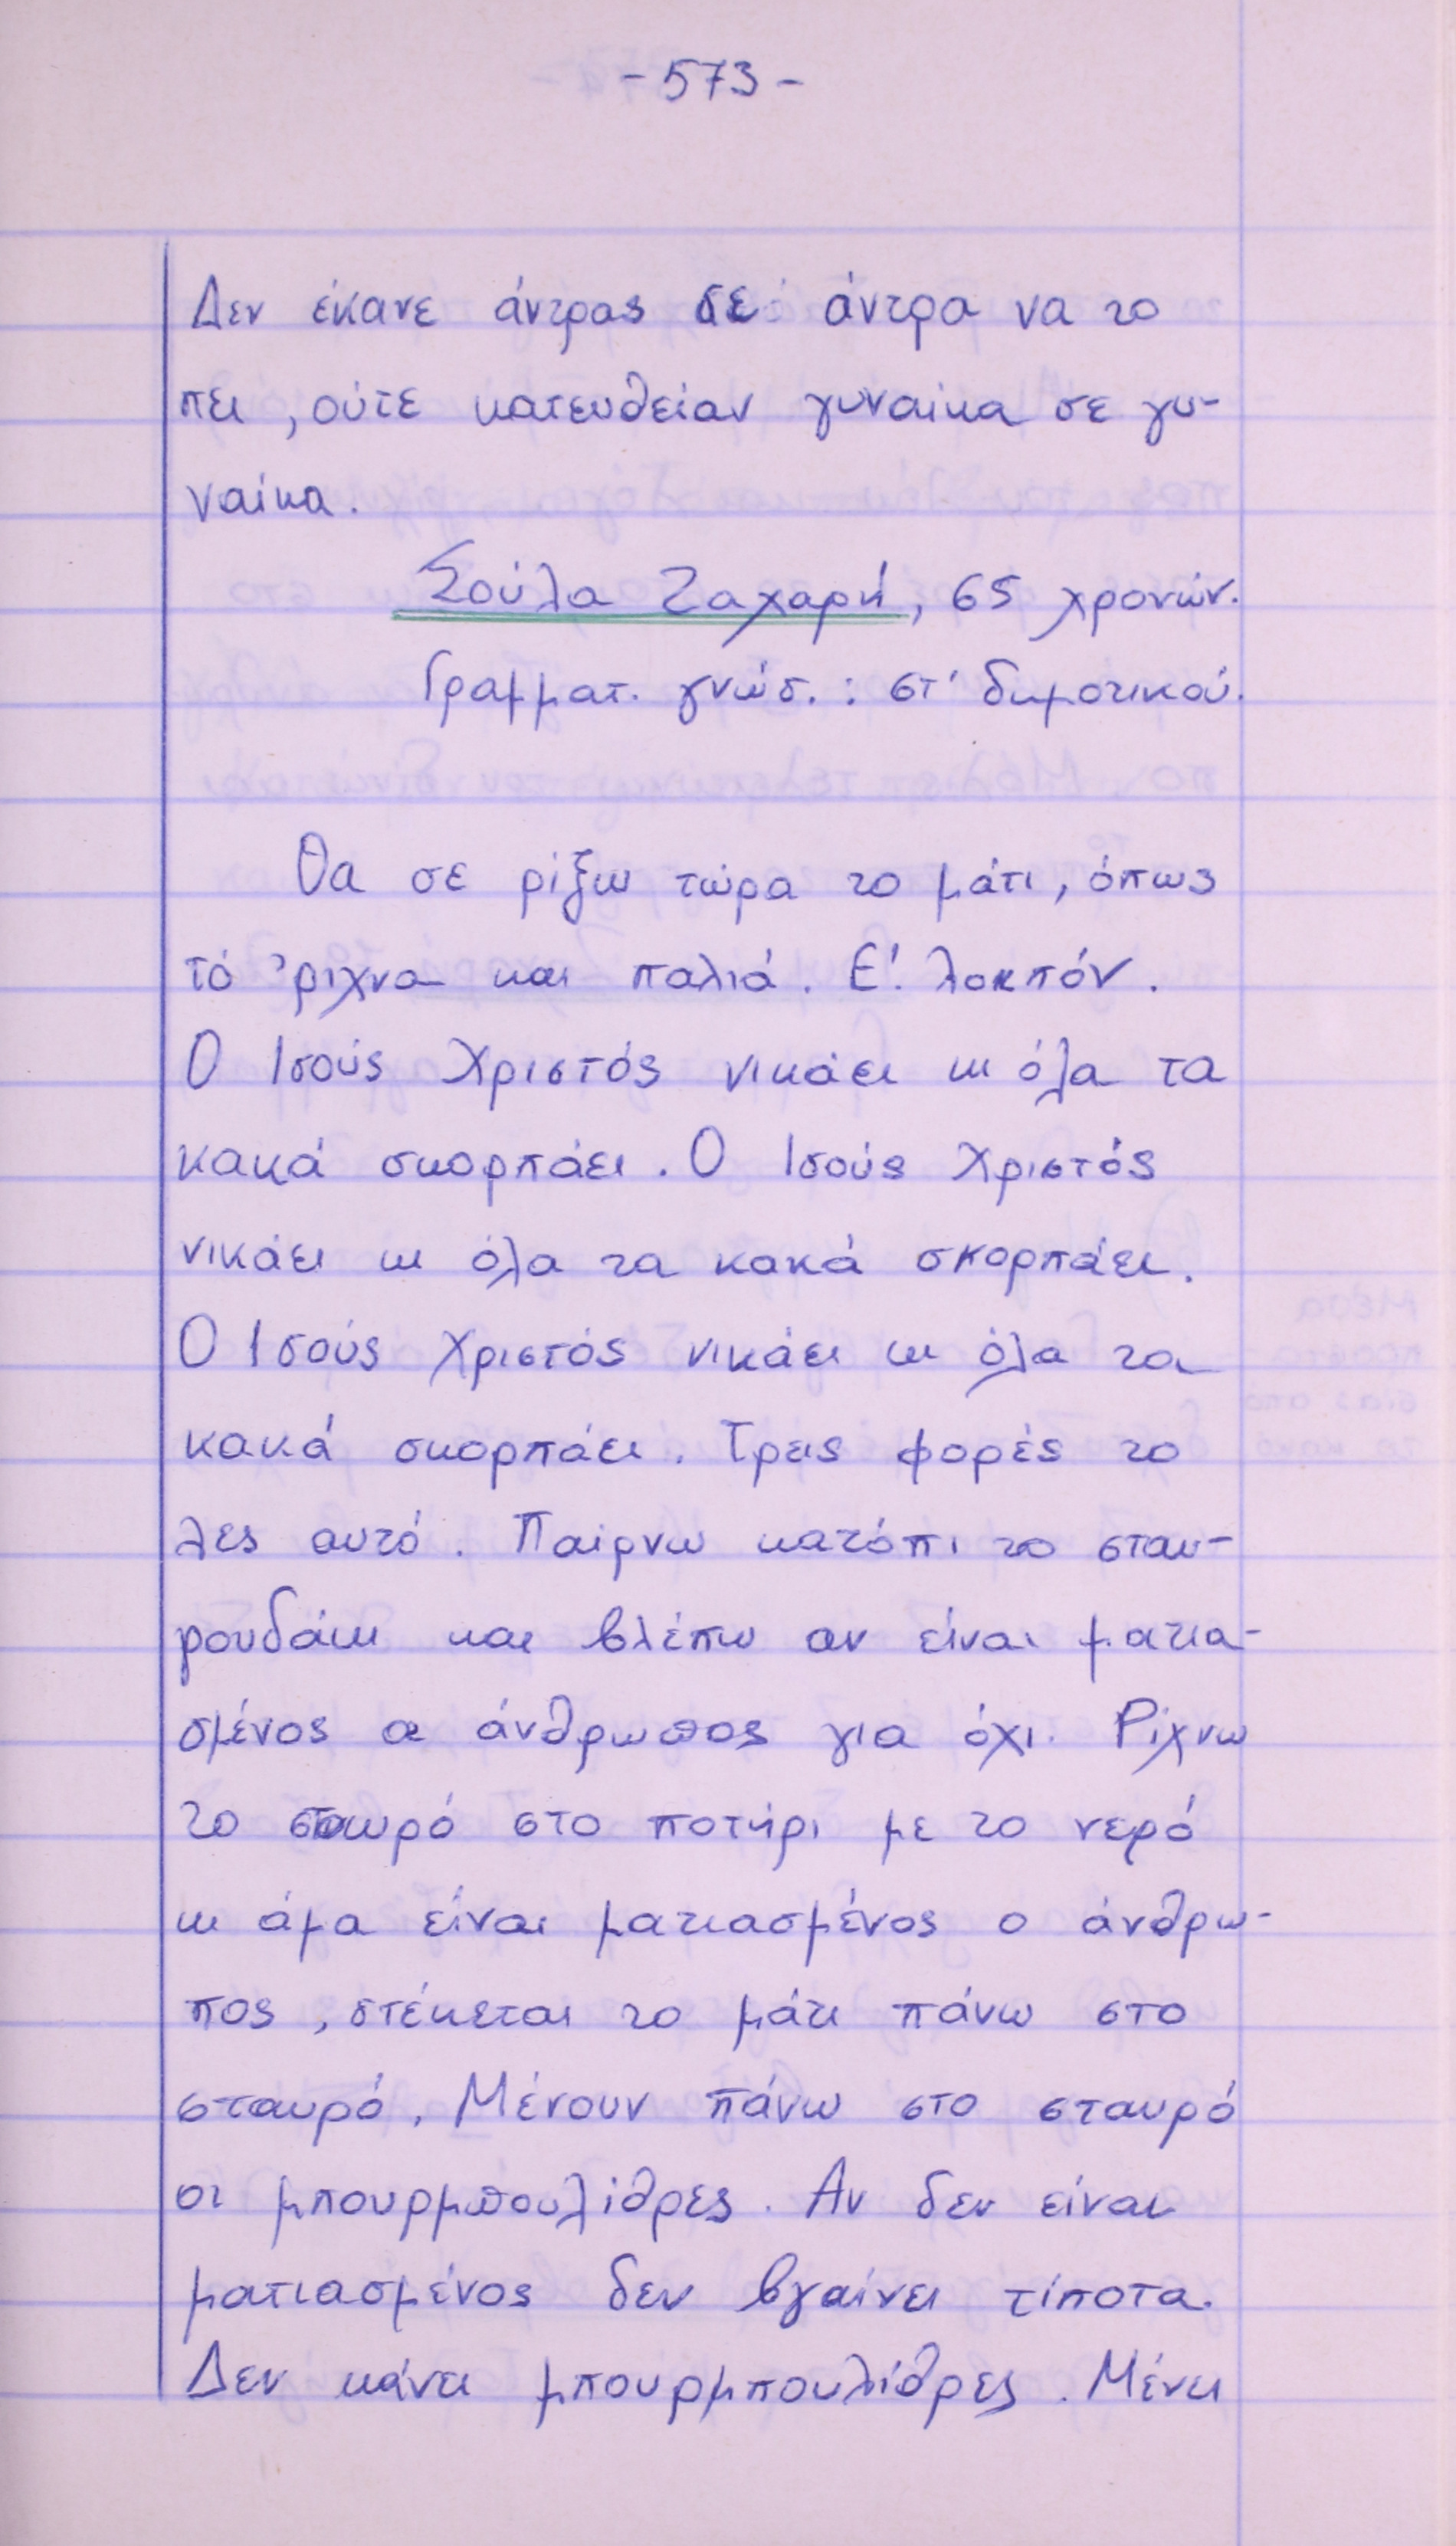 - 573 -
Δεν έκανε άντρας σε άντρα να το
πει, ούτε κατευθείαν γυναίκα σε γυ-
ναίκα.
Σούλα Ζαχαρή, 65 χρονών.
Γραμματ. γνώσ. : στ' δημοτικού.
Θα σε ρίξω τώρα το μάτι, όπως
τό 'ριχνα και παλιά. Ε! λοιπόν.
Ο Ισούς Χριστός νικάει κι όλα τα
κακά σκορπάει. Ο Ισούς Χριστός
νικάει κι όλα τα κακά σκορπάει.
Ο Ισούς Χριστός νικάει κι όλα τα
κακά σκορπάει. Τρεις φορές το
λες αυτό. Παίρνω κατόπι το σταυ-
ρουδάκι και βλέπω αν είναι ματια-
σμένος ο άνθρωπος για όχι. Ρίχνω
το σταυρό στο ποτήρι με το νερό
κι άμα είναι ματιασμένος ο άνθρω-
πος, στέκεται το μάτι πάνω στο
σταυρό. Μένουν πάνω στο σταυρό
οι μπουρμπουλίθρες. Αν δεν είναι
ματιασμένος δεν βγαίνει τίποτα.
Δεν κάνει μπουρμπουλίθρες. Μένει